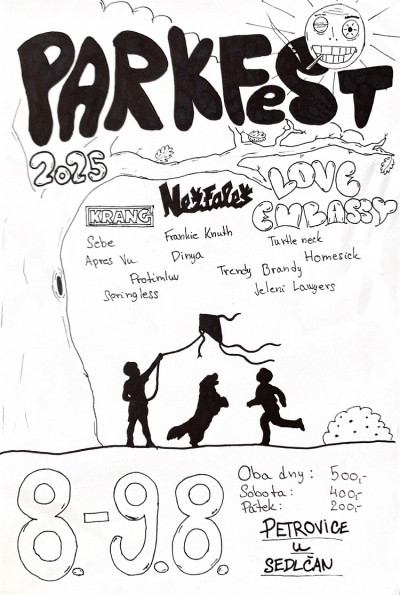 PARKFEST
2025
LOVE
EMBASSY
KRANG
Nežfaleš
Sebe
Frankie Knuth
Turtle neck
Apres Vu
Dinya
Homesick
Protimluv
Trendy Brandy
Springless
Jelení Lawyers
8.-9.8.
Oba dny: 500,-
Sobota: 400,-
Pátek: 200,-
PETROVICE
U
SEDLČAN